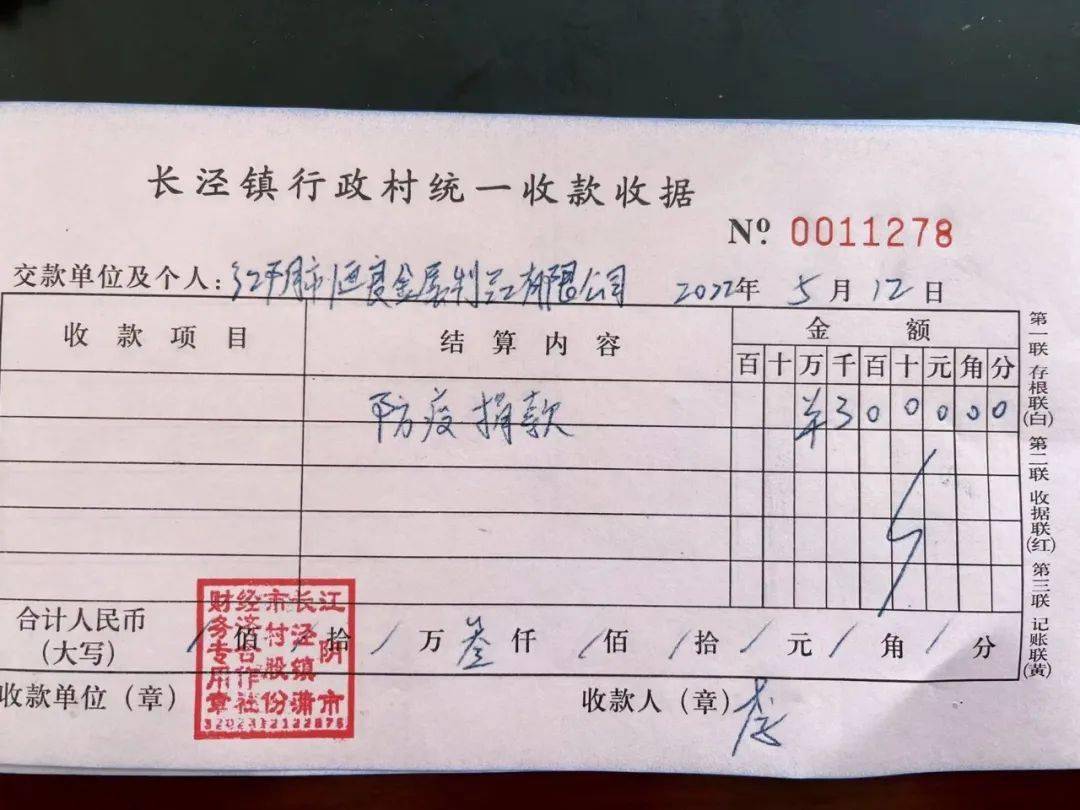 长泾镇行政村统一收款收据
Nº 0011278
交款单位及个人:江阴市金属制品有限公司 2022年5月12日
收款项目 结算内容 金额
百 十 万 千 百 十 元 角 分
防疫捐款 ¥300000
合计人民币(大写) / 佰 / 拾 / 万 叁 仟 / 佰 / 拾 / 元 / 角 / 分
收款单位(章) 收款人(章) 李
江阴市
长泾镇蒲
市付股份
经济合作社
财务专用章
第一联 存根联(白)
第二联 收据联(红)
第三联 记账联(黄)